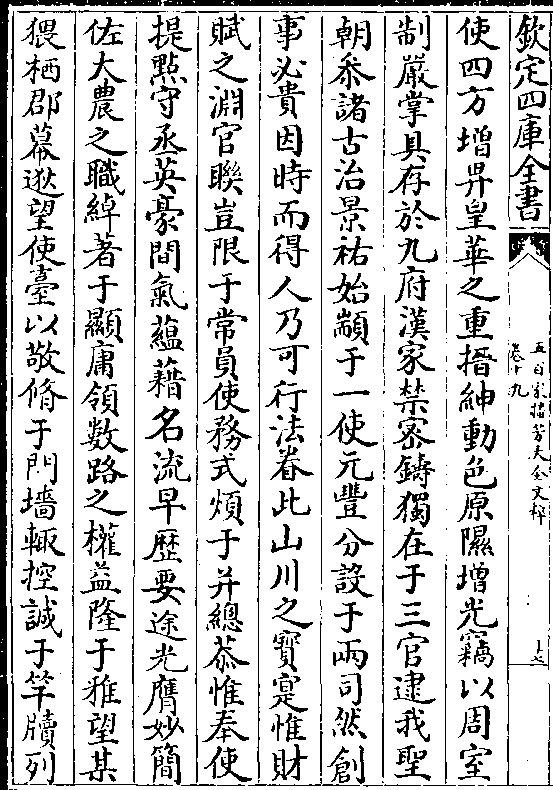 欽定四庫全書
五百家播芳大全文粹
卷十九
使四方增昇皇華之重搢紳動色原隰增光竊以周室
制嚴掌具存於九府漢家禁密鑄獨在于三官逮我聖
朝叅諸古治景祐始顓于一使元豐分設于兩司然創
事必貴因時而得人乃可行法眷此山川之寳寔惟財
賦之淵官聨豈限于常員使務式煩于并總恭惟奉使
提㸃守丞英豪間氣蘊藉名流早歴要途光膺妙簡
佐大農之職綽著于顯庸領數路之權益隆于雅望某
猥栖郡幕逖望使臺以敬脩于門墻輙控誠于竿牘列